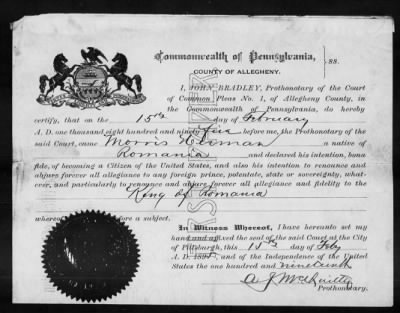 Commonwealth of Pennsylvania,
COUNTY OF ALLEGHENY.
ss.
I, JOHN BRADLEY, Prothonotary of the Court
of Common Pleas No. 1, of Allegheny County, in
the Commonwealth of Pennsylvania, do hereby
certify, that on the 15th day of February
A. D. one thousand eight hundred and ninety five before me, the Prothonotary of the
said Court, came Morris Herman a native of
Romania and declared his intention, bona
fide, of becoming a Citizen of the United States, and also his intention to renounce and
abjure forever all allegiance to any foreign prince, potentate, state or sovereignty, what-
ever, and particularly to renounce and abjure forever all allegiance and fidelity to the
King of Romania
whereof before a subject.
In Witness Whereof, I have hereunto set my
hand and affixed the seal of the said Court at the City
of Pittsburgh, this 15th day of Feby
A. D. 1895, and of the Independence of the United
States the one hundred and nineteenth
Prothonotary.